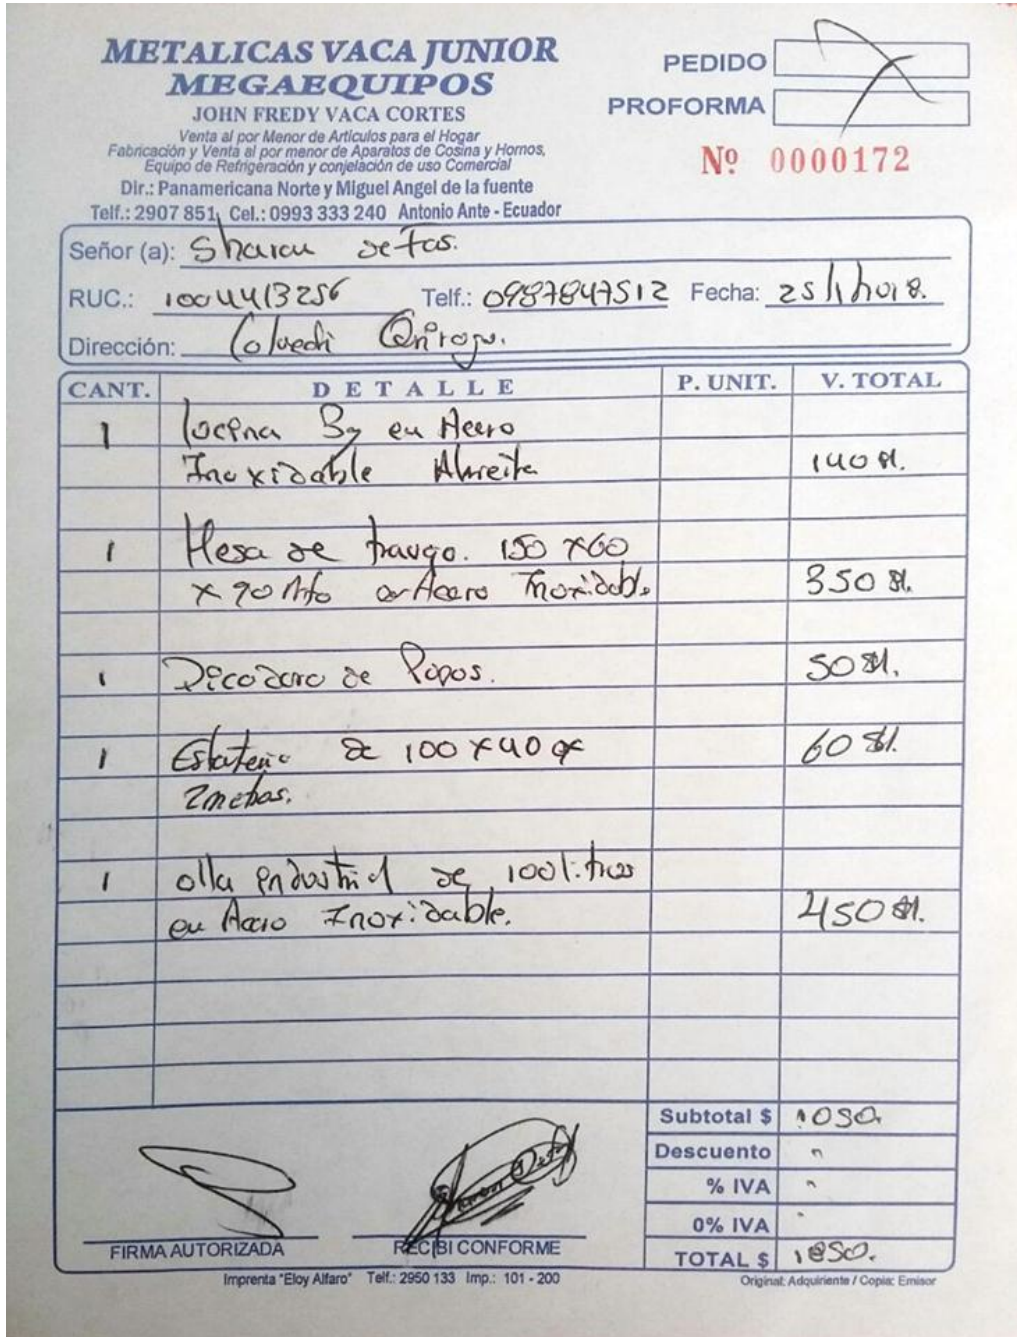 METALICAS VACA JUNIOR
MEGAEQUIPOS
JOHN FREDY VACA CORTES
Venta al por Menor de Articulos para el Hogar
Fabricación y Venta al por menor de Aparatos de Cosina y Hornos,
Equipo de Refrigeración y conjelación de uso Comercial
Dir.: Panamericana Norte y Miguel Angel de la fuente
Telf.: 2907 851, Cel.: 0993 333 240 Antonio Ante - Ecuador
PEDIDO
PROFORMA
Nº 0000172
Señor (a):
RUC.: 1004413256 Telf.: 0987847512 Fecha:
Dirección:
CANT. DETALLE P. UNIT. V. TOTAL
1 en Acero
Inoxidable 140
1 Mesa de 150 x 60
x 90 Alto Acero Inoxidable 350
1 de Papas. 50
1 100 x 40
2 metros. 60
1 olla industrial de 100 litros
en Acero Inoxidable. 450
Subtotal $ 1050.
Descuento "
% IVA "
0% IVA "
TOTAL $ 1050.
FIRMA AUTORIZADA RECIBI CONFORME
Imprenta "Eloy Alfaro" Telf.: 2950 133 Imp.: 101 - 200
Original: Adquiriente / Copia: Emisor